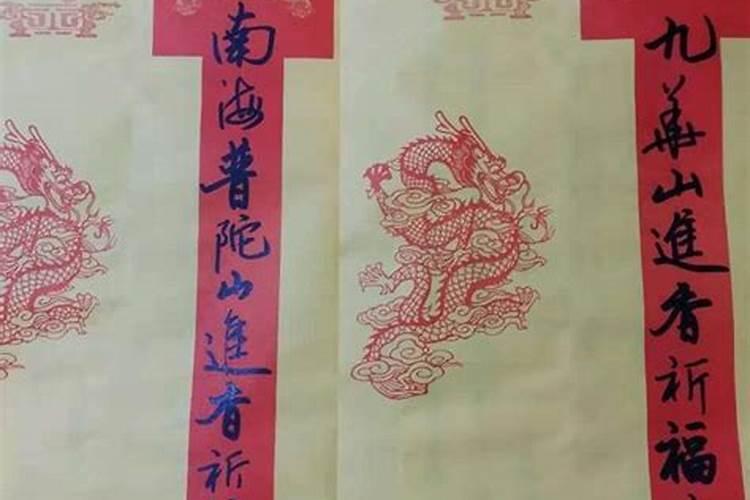 南海普陀山進香祈
九華山進香祈福